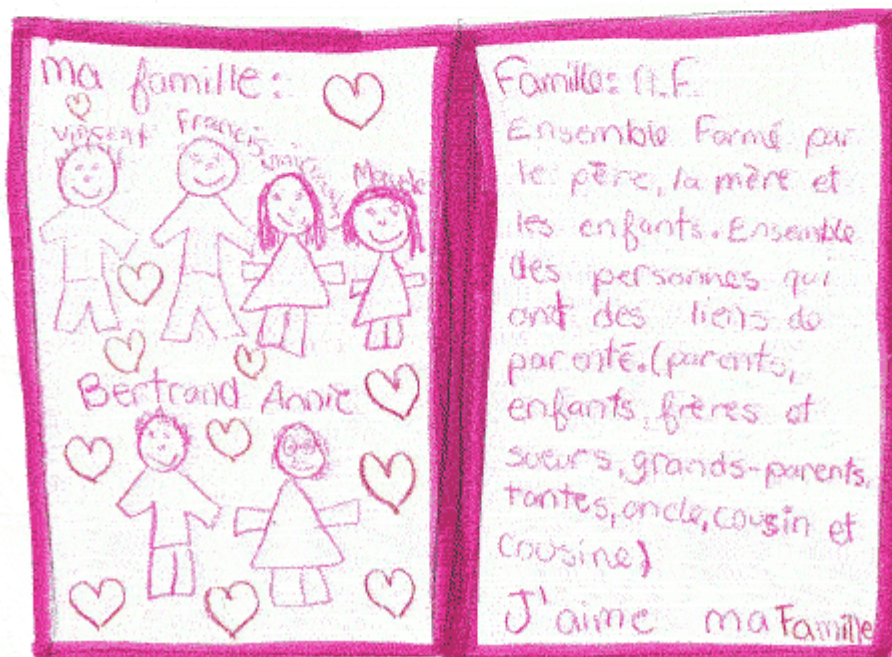 ma famille:
Vincent Francis
Maude
Bertrand Annie
Famille: n.F.
Ensemble Formé par
le père, la mère et
les enfants. Ensemble
des personnes qui
ont des liens de
parenté. (parents,
enfants, frères et
sueurs, grands-parents,
tantes, oncle, cousin et
cousine)
J'aime ma Famille